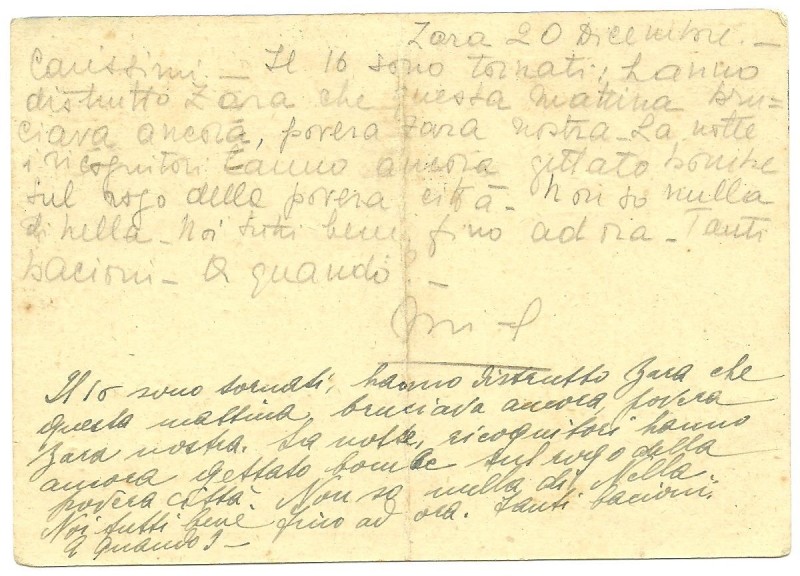 Zara 20 Dicembre. -
Carissimi. - Il 16 sono tornati, hanno
distrutto Zara che questa mattina bru-
ciava ancora, povera Zara nostra - La notte
i ricognitori hanno ancora gettato bombe
sul rogo della povera città - Non so nulla
di Nella - Noi tutti bene, fino ad ora - Tanti
bacioni - A quando? -
Il 16 sono tornati, hanno distrutto Zara che
questa mattina, bruciava ancora, povera
Zara nostra. La notte, ricognitori hanno
ancora gettato bombe sul rogo della
povera città. Non so nulla di Nella.
Noi tutti bene fino ad ora. Tanti bacioni.
A quando? -